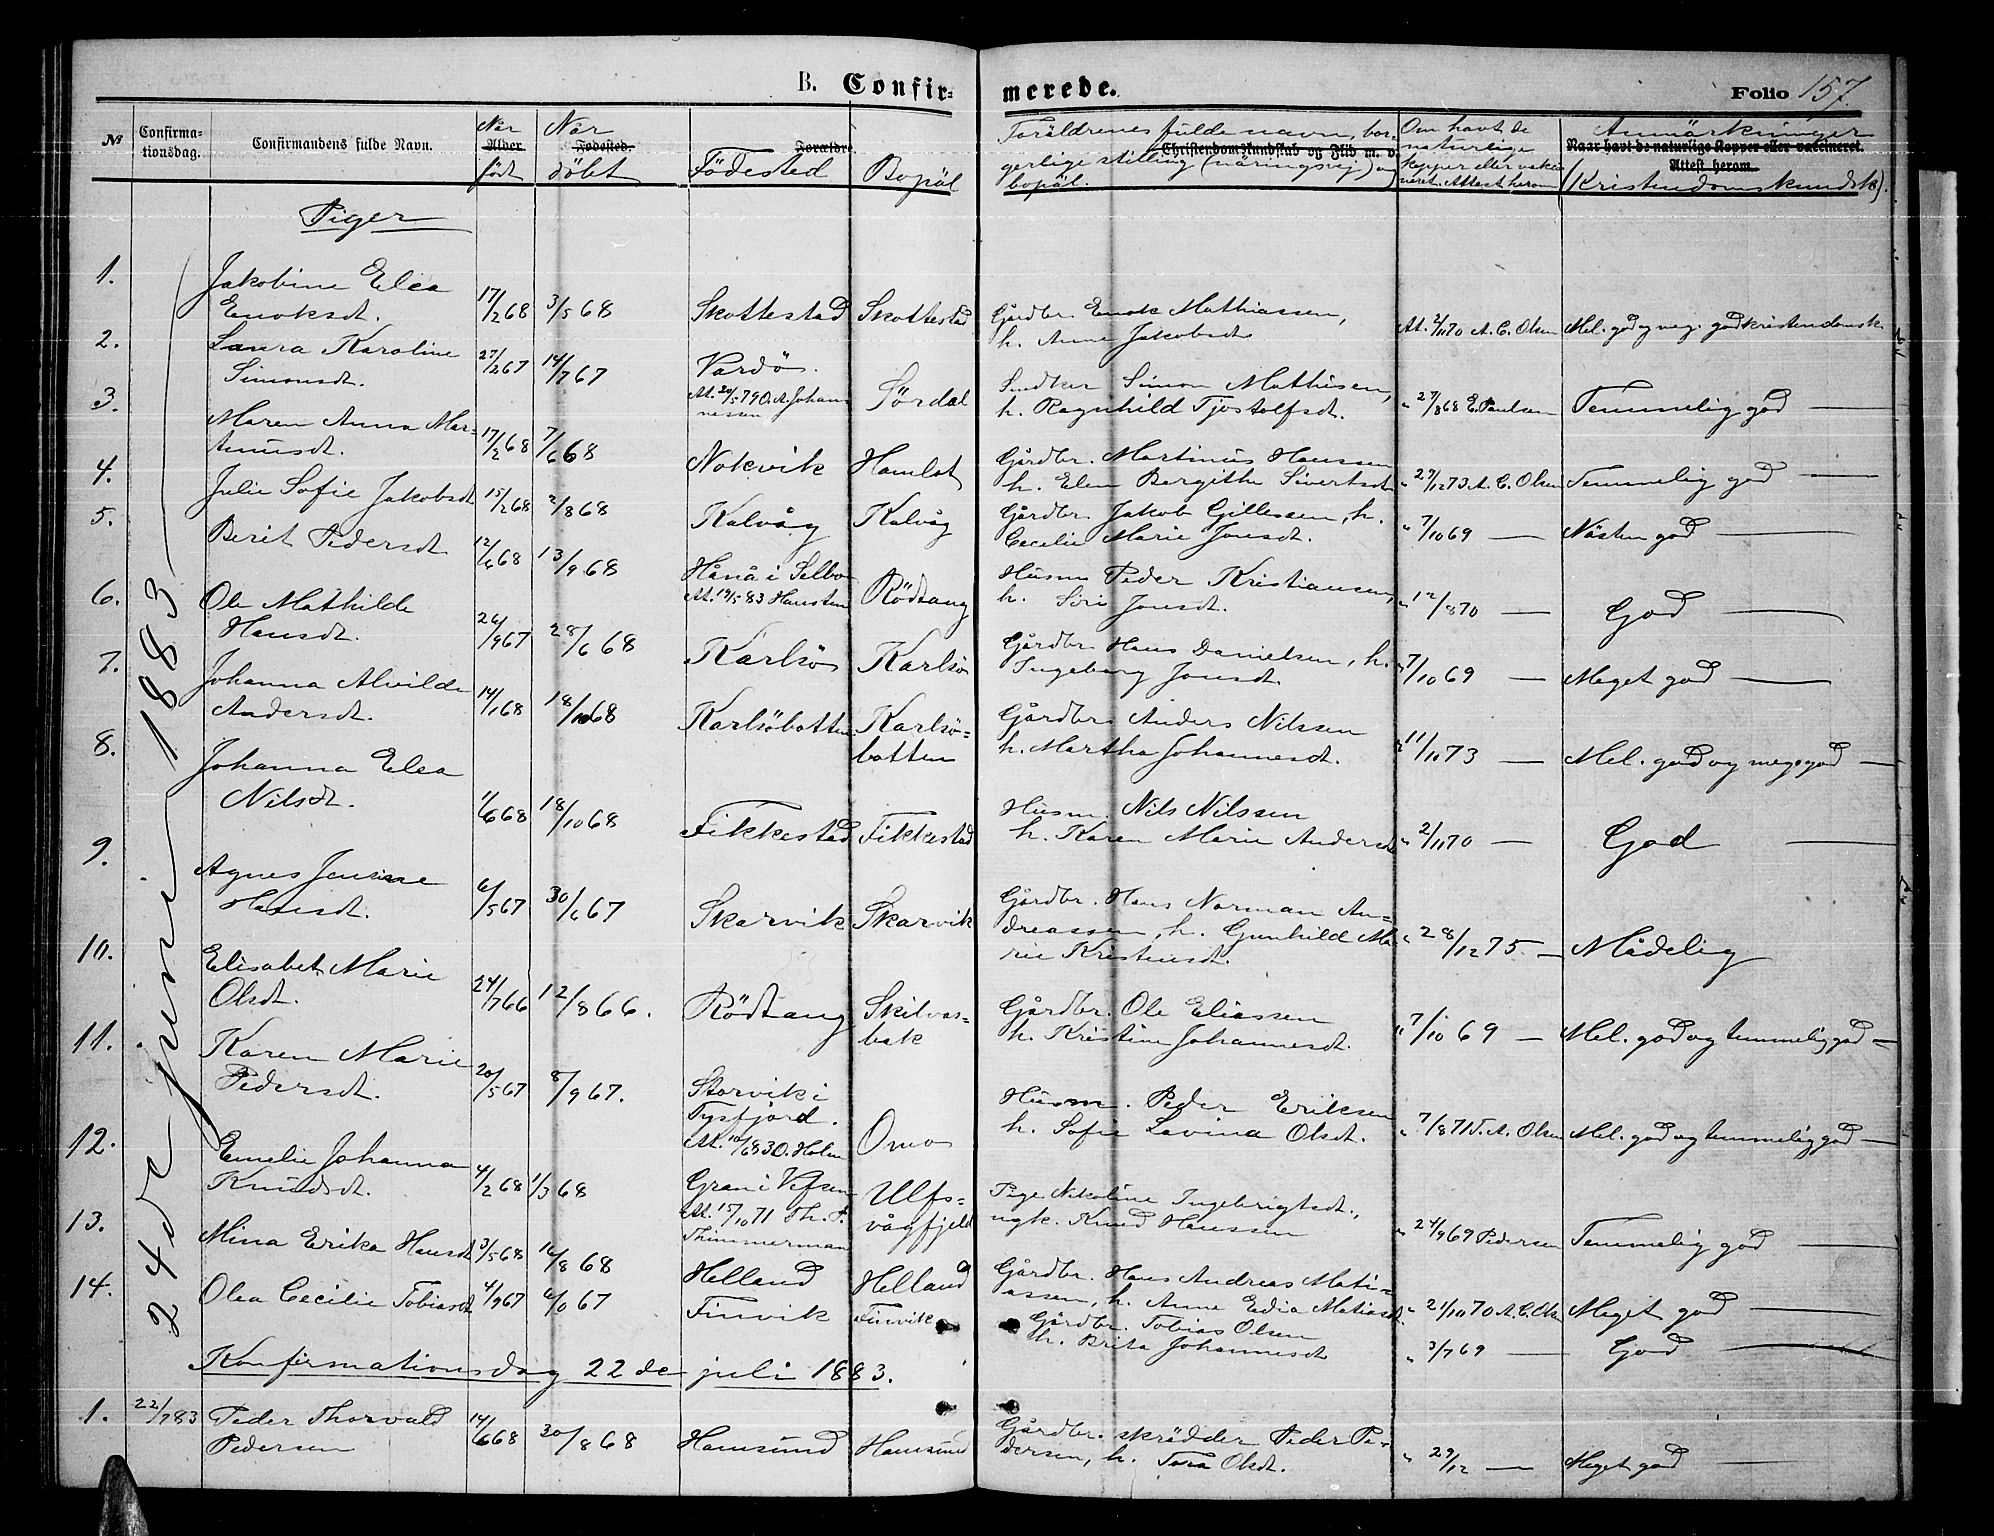 B. Confirmerede.
Folio 157
№
Confirmationsdag.
Confirmandens fulde Navn.
Når født
Alder.
Når döbt
Fødested.
Födested
Forældre
Bopäl
Foräldrenes fulde navn, borgerlige stilling (näringsvej) og bopäl.
Christendomskundskab og Flid m. v.
Om havt de naturlige kopper eller vaksineret. Attest herom
Anmärkninger
Naar havt de naturlige Kopper eller vaccineret. Attest herom.
(Kristendomskundsk).
Piger
24de juni 1883
1. Jakobine Elea Enoksdt. 17/2 68 3/5 68 Skottestad Skottestad Gårdbr. Enok Mathiassen, h. Anne Jakobsdt At. 2/11 70 A. C. Olsen Mel. god og meg. god kristendomsk
2. Laura Karoline Simonsdt. 27/2 67 14/7 67 Vardö. At. 20/5 79 O. A. Johannessen Sördal Smdker Simon Mathisen, h. Ragnhild Tjostolfsdt. " 27/8 68 E. Paulsen Temmelig god
3. Maren Anna Martinusdt. 17/2 68 7/6 68 Nokvik Hamlot Gårdbr. Martinus Hanssen h. Elen Bergithe Sivertsdt " 29/12 73 A. C. Olsen Temmelig god
4. Julie Sofie Jakobsdt 15/2 68 2/8 68 Kalvåg Kalvåg Gårdbr. Jakob Gillessen, h. Cecilie Marie Jonsdt. " 7/10 69 Nästen god
5. Berit Pedersdt 12/6 68 13/9 68 Hånå i Selbo At. 19/5 83 Hansten Rödtang Husm Peder Kristiansen, h. Siri Jonsdt. " 12/8 70 God
6. Ole Mathilde Hansdt. 26/9 67 28/6 68 Karlsö Karlsö Gårdbr Hans Danielsen, h. Ingeborg Jonsdt. " 7/10 69 Meget god
7. Johanna Alvilde Andersdt. 14/1 68 18/10 68 Karlsöbotten Karlsöbotten Gårdbr Anders Nilssen h. Martha Johannesdt. " 11/10 73 Mel. god og meg. god
8. Johanna Elea Nilsdt. 1/6 68 18/10 68 Fikkestad Fikkestad Husm. Nils Nilssen h. Karen Marie Andersdt " 2/11 70 God
9. Agnes Jensine Hansdt. 6/5 67 30/6 67 Skarvik Skarvik Gårdbr. Hans Norman Andreassen, h. Gunhild Marie Kristensdt. " 28/12 75 Mådelig
10. Elisabet Marie Olsdt. 24/7 66 12/8 66. Rödtang Skilvasbak Gårdbr. Ole Eliassen h. Kristine Johannesdt. " 7/10 69 Mel. god og temmelig god
11. Karen Marie Pedersdt. 20/5 67 8/9 67. Storvik i Tysfjord. At. 10/6 83 O. Holm Omo Husm. Peder Eriksen h. Sofie Lovina Olsdt. " 7/8 71 T. A. Olsen Mel. god og temmelig god
12. Emelie Johanna Knudsdt. 4/2 68 1/3 68 Gran i Vefsen At. 15/10 71 Th. P. Thimmerman Ulfsvågfjeld Pige Nikoline Ingebrigtsdt., ugk. Knud Hanssen " 24/9 69 Pedersen Temmelig god
13. Mina Erika Hansdt 3/5 68 16/8 68 Helland Helland Gårdbr. Hans Andreas Matiassen, h. Anne Edia Matiasdt. " 21/10 70 A. C. Olsen Meget god
14. Olea Cecilie Tobiasdt 4/9 67 6/10 67 Finvik Finvik Gårdbr. Tobias Olsen h. Brita Johannesdt " 3/7 69 God
Konfirmationsdag 22de juli 1883.
1. 22/7 83 Peder Thorvald Pedersen 14/6 68 30/8 68 Hamsund Hamsund Gårdbr. skrädder Peder Pedersen, h. Tora Olsdt. " 29/12 Meget god